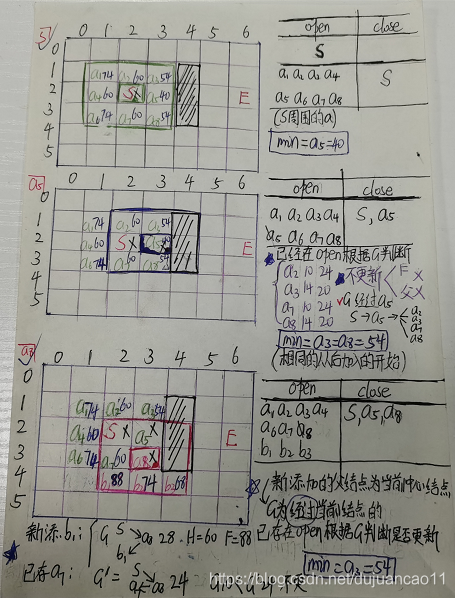 S
0 1 2 3 4 5 6
1 a₁74 a₂60 a₃54
2 a₄60 S× a₅40 E
3 a₆74 a₇60 a₈54
4
5
open close
S
a₁ a₂ a₃ a₄ S
a₅ a₆ a₇ a₈
(S周围的a)
min=a₅=40
a₅
0 1 2 3 4 5 6
1 a₁74 a₂60 a₃54
2 a₄60 S× a₅40 E
3 a₆74 a₇60 a₈54
4
5
open close
a₁ a₂ a₃ a₄ S, a₅
a₅ a₆ a₇ a₈
已经在open根据G判断
a₂ 10 24 不更新 F ×
a₃ 14 20 父×
a₇ 10 24 G 经过a₅
a₈ 14 20 S→a₅→ a₂ a₃ a₇ a₈
min=a₃=a₈=54
(相同的从后加入的开始)
a₈
0 1 2 3 4 5 6
0
1 a₁74 a₂60 a₃54
2 a₄60 S× a₅× E
3 a₆74 a₇60 a₈×
4 b₁88 b₂74 b₃68
5
open close
a₁ a₂ a₃ a₄ S, a₅, a₈
a₆ a₇ a₈
b₁ b₂ b₃
新添加的父结点为当前中心结点
G为经过当前结点的
已存在open根据G判断是否更新
min=a₃=54
新添b₁: G S a₈ b₁ 28. H=60 F=88
已存a₇: G'= S a₅ a₈ 24
https://blog.csdn.net/dujuancao11